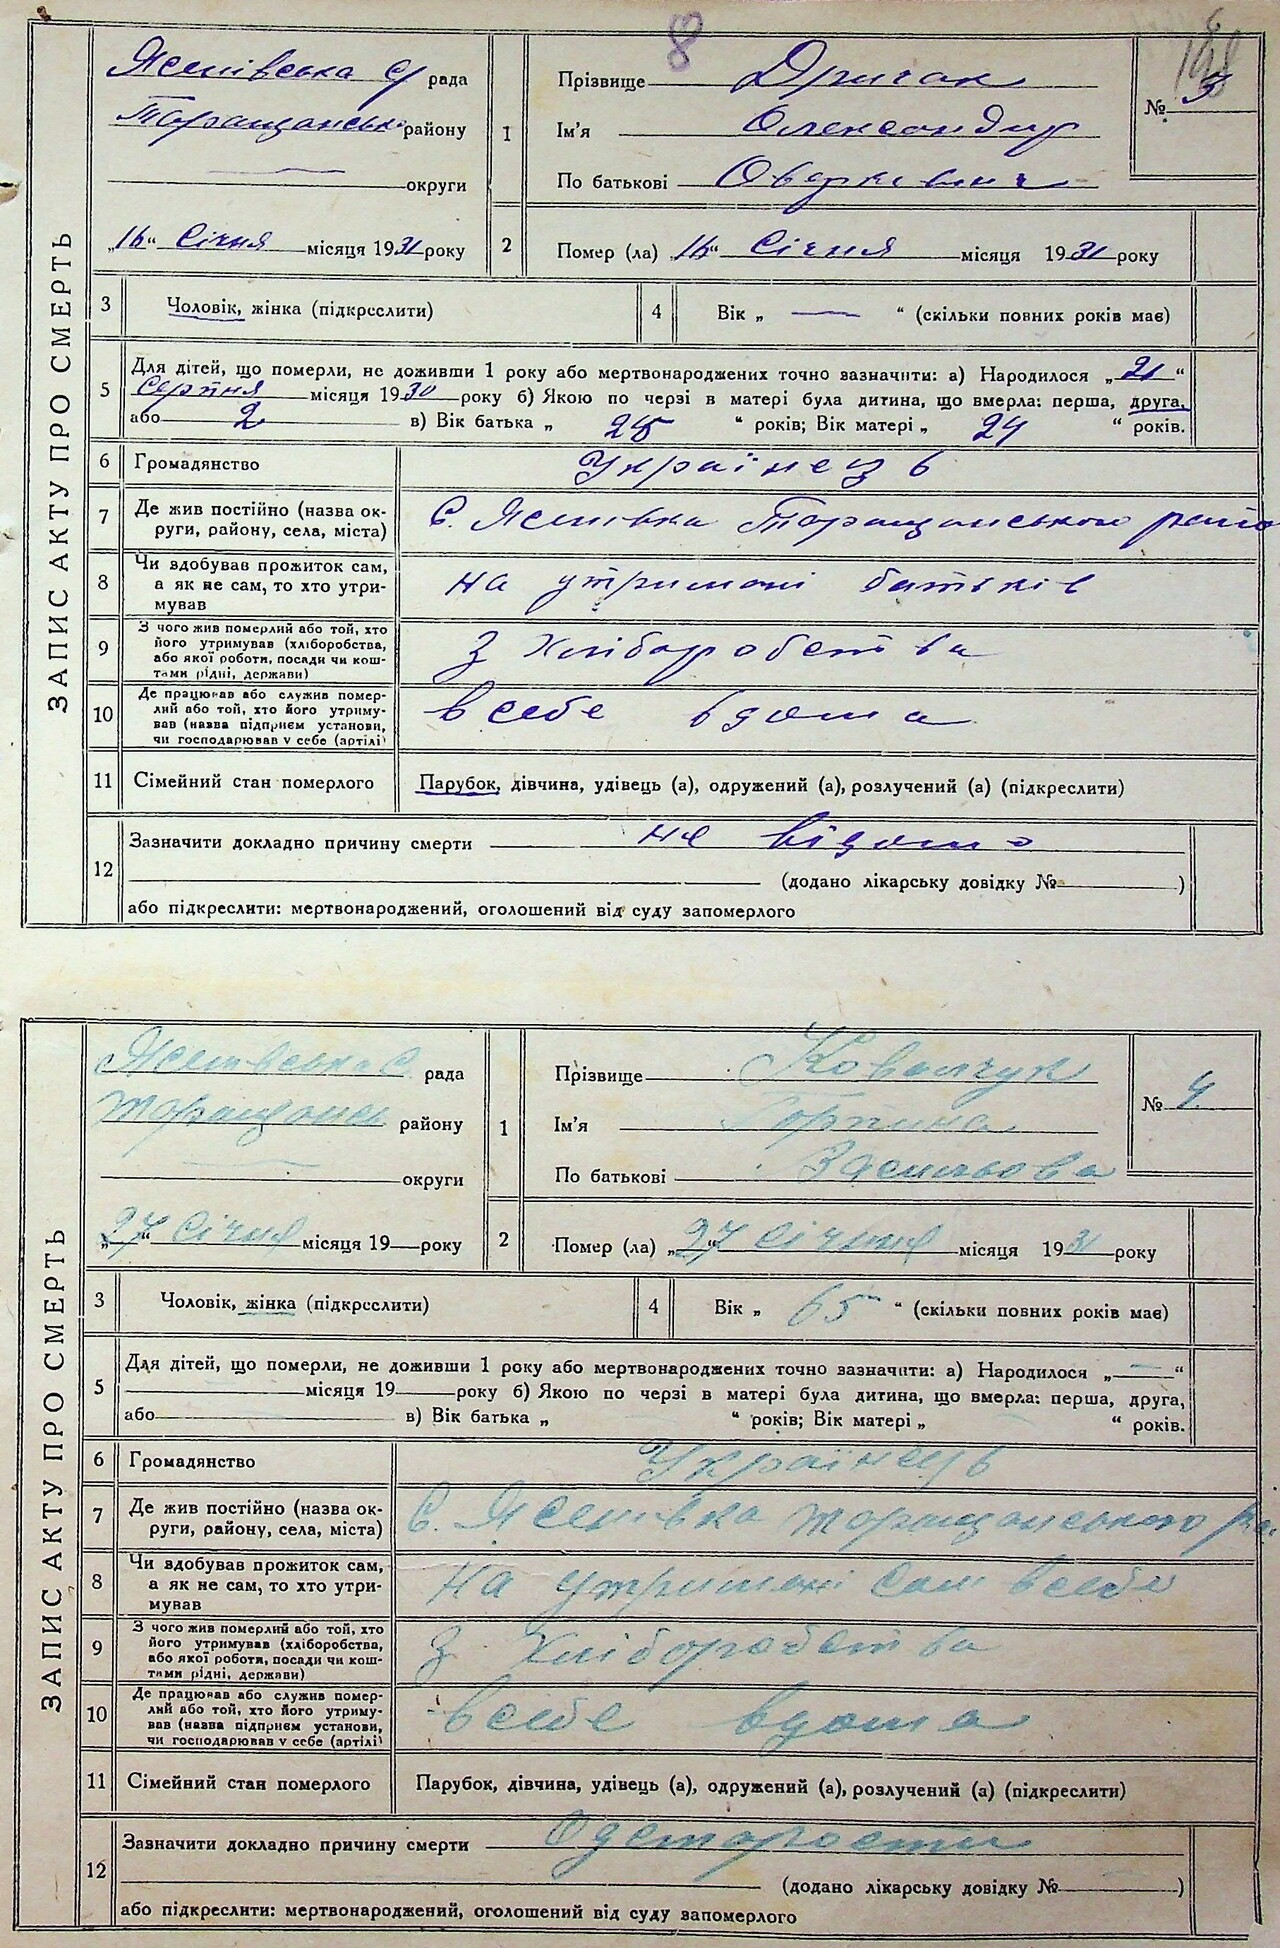 8
198
ЗАПИС АКТУ ПРО СМЕРТЬ
Ясенівська с/ рада
Таращанськ району
округи
„16“ Січня місяця 1931 року
1
Прізвище Дригак
Ім'я Олександр
По батькові Оваркович
№ 3
2
Помер (ла) „16“ Січня місяця 1931 року
3
Чоловік, жінка (підкреслити)
4
Вік „ — “ (скільки повних років має)
5
Для дітей, що померли, не доживши 1 року або мертвонароджених точно зазначити: а) Народилося „21“
Серпня місяця 1930 року б) Якою по черзі в матері була дитина, що вмерла: перша, друга,
або 2 в) Вік батька „ 25 “ років; Вік матері „ 24 “ років.
6
Громадянство Українець
7
Де жив постійно (назва ок-
руги, району, села, міста)
С. Ясенівка Таращанського райо
8
Чи здобував прожиток сам,
а як не сам, то хто утри-
мував
на утримані батьків
9
З чого жив померлий або той, хто
його утримував (хліборобства,
або якої роботи, посади чи кош-
тами рідні, держави)
з хліборобства
10
Де працював або служив помер-
лий або той, хто його утриму-
вав (назва підприєм установи,
чи господарював у себе (артілі)
в себе вдома
11
Сімейний стан померлого
Парубок, дівчина, удівець (а), одружений (а), розлучений (а) (підкреслити)
12
Зазначити докладно причину смерти не відомо
(додано лікарську довідку № )
або підкреслити: мертвонароджений, оголошений від суду запомерлого
ЗАПИС АКТУ ПРО СМЕРТЬ
Ясенівська с рада
Таращанськ району
округи
„27“ Січня місяця 19— року
1
Прізвище Ковальчук
Ім'я Горпина
По батькові
№ 4
2
Помер (ла) „27“ Січня місяця 1931 року
3
Чоловік, жінка (підкреслити)
4
Вік „ 65 “ (скільки повних років має)
5
Для дітей, що померли, не доживши 1 року або мертвонароджених точно зазначити: а) Народилося „—“
місяця 19 року б) Якою по черзі в матері була дитина, що вмерла: перша, друга,
або в) Вік батька „ “ років; Вік матері „ “ років.
6
Громадянство Українець
7
Де жив постійно (назва ок-
руги, району, села, міста)
С. Ясенівка Таращанського ра
8
Чи здобував прожиток сам,
а як не сам, то хто утри-
мував
на утримані сам в себе
9
З чого жив померлий або той, хто
його утримував (хліборобства,
або якої роботи, посади чи кош-
тами рідні, держави)
з хліборобства
10
Де працював або служив помер-
лий або той, хто його утриму-
вав (назва підприєм установи,
чи господарював у себе (артілі)
в себе вдома
11
Сімейний стан померлого
Парубок, дівчина, удівець (а), одружений (а), розлучений (а) (підкреслити)
12
Зазначити докладно причину смерти Од старости
(додано лікарську довідку № )
або підкреслити: мертвонароджений, оголошений від суду запомерлого